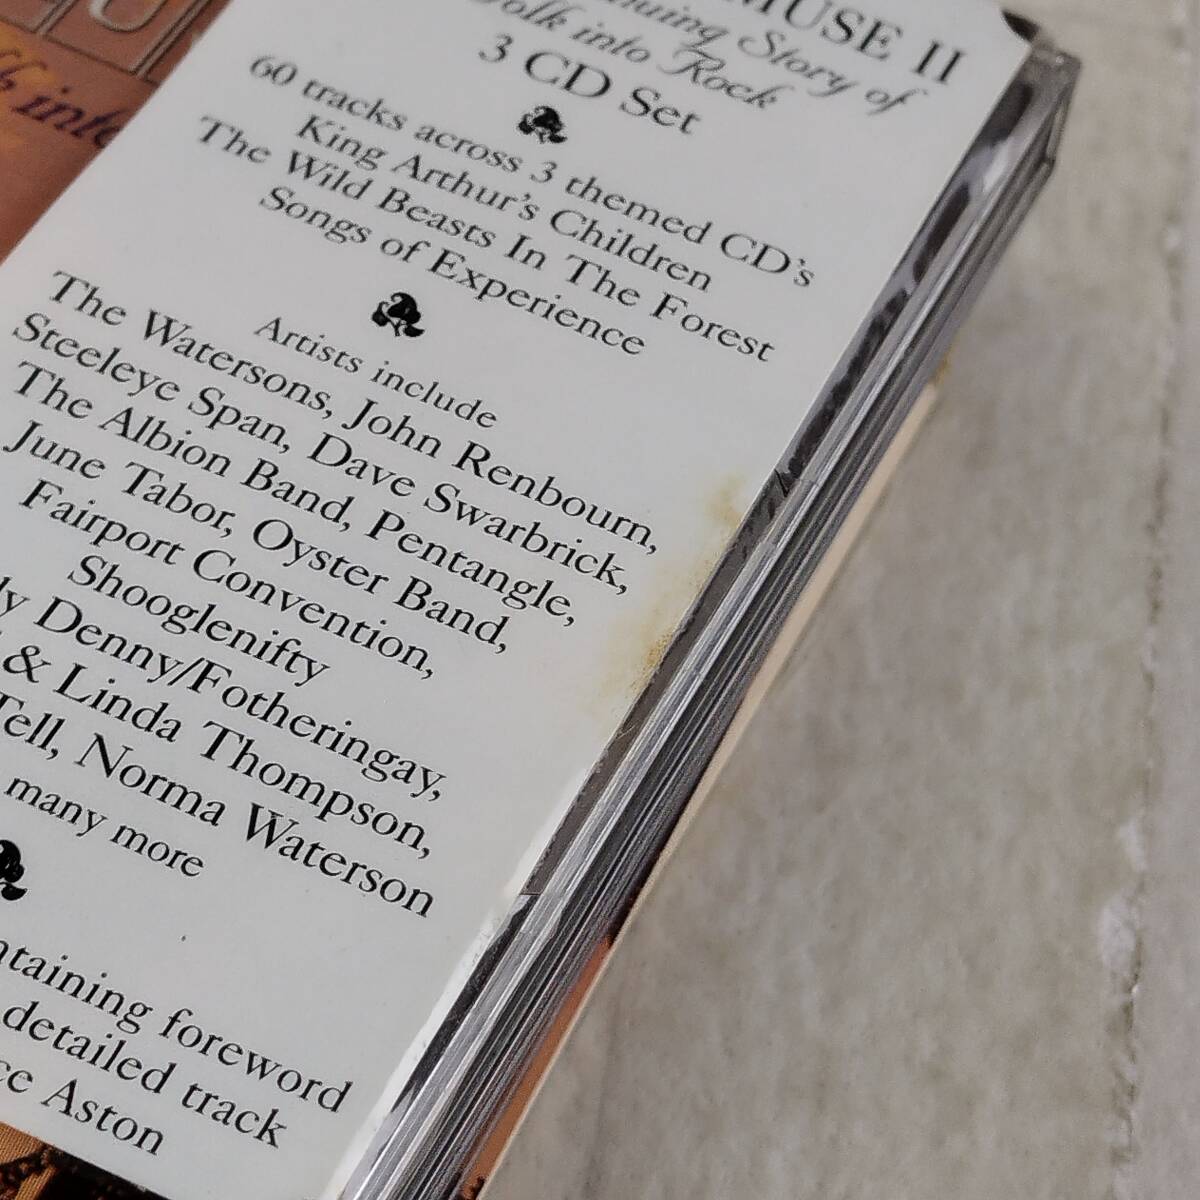 MUSE II
Story of
Folk into Rock
3 CD Set
60 tracks across 3 themed CD's
King Arthur's Children
The Wild Beasts In The Forest
Songs of Experience
Artists include
The Watersons, John Renbourn,
Steeleye Span, Dave Swarbrick,
The Albion Band, Pentangle,
June Tabor, Oyster Band,
Fairport Convention,
Shooglenifty
Denny/Fotheringay,
& Linda Thompson,
Tell, Norma Waterson
many more
foreword
detailed track
Aston